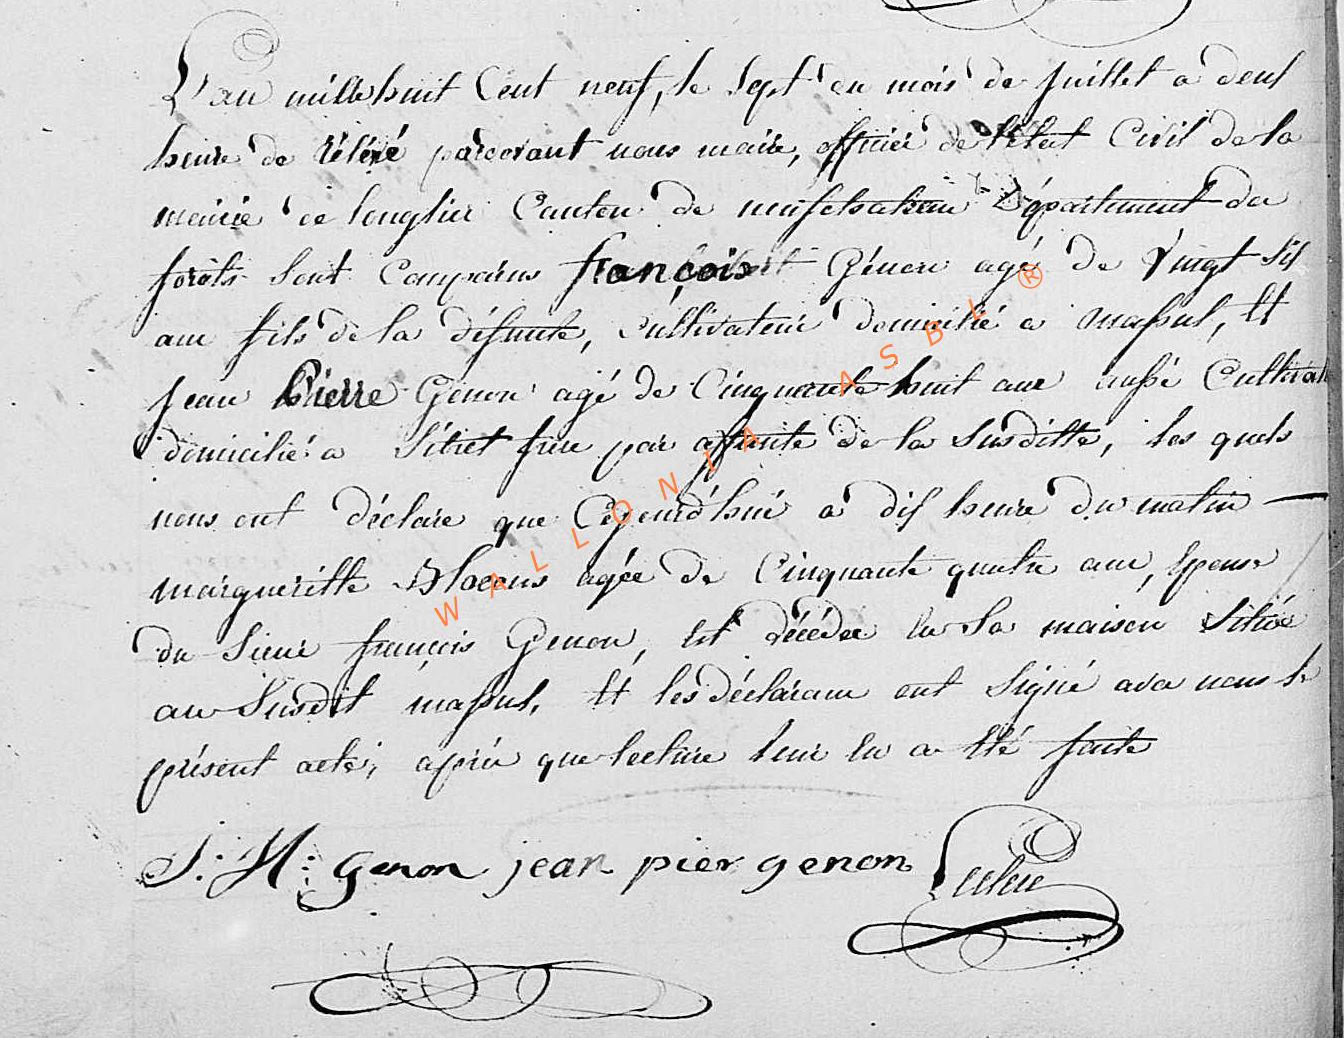 L'an mille huit Cent neuf, le Sept du mois de Juillet a deux
heure de rélévé pardevant nous maire, officier de l'état Civil de la
mairie de longlier Canton de neufchateau Département des
forêts sont Comparus françois Génon agé de Vingt Six
ans fils de la défunte, Cultivateur domicilié a massul, Et
jean Pierre Genon agé de Cinquante huit ans aussi Cultivat
domicilié a Sitret frere par affinité de la Susditte, les quels
nous ont déclaré que Cejourd'hui a dix heure du matin
margueritte agée de Cinquante quatre ans, Epouse
du Sieur françois Genon, Est décédée en Sa maison Située
au Susdit massul, Et les déclarans ont Signé avec nous le
présent acte, après que lecture leur en a Eté faite
J: H: genon jean pier genon
WALLONIA ASBL ®